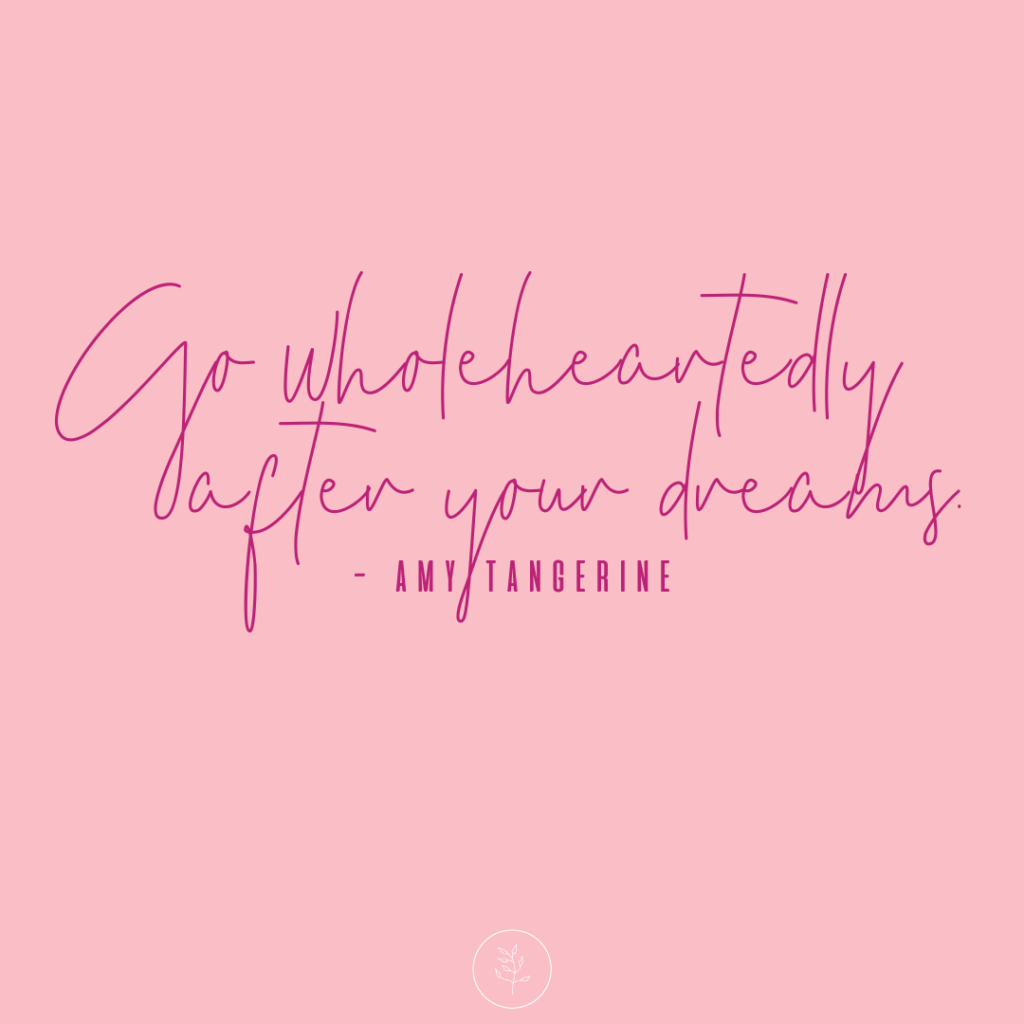 Go wholeheartedly
after your dreams.
- AMY TANGERINE